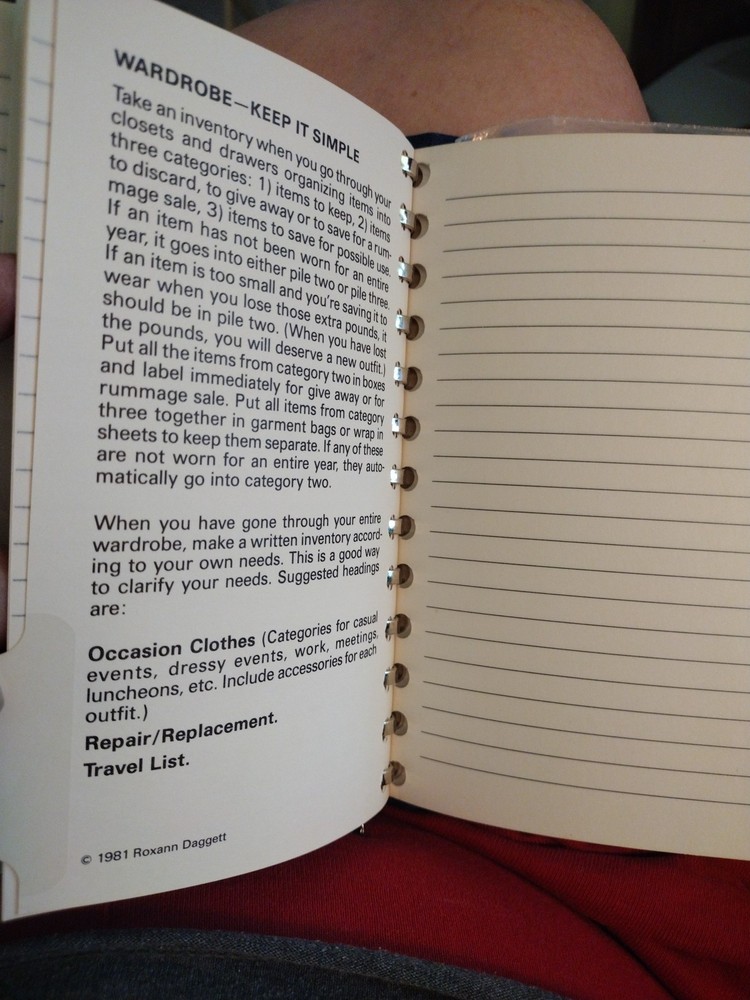 WARDROBE—KEEP IT SIMPLE
Take an inventory when you go through your
closets and drawers organizing items into
three categories: 1) items to keep, 2) items
to discard, to give away or to save for a rum-
mage sale, 3) items to save for possible use.
If an item has not been worn for an entire
year, it goes into either pile two or pile three.
If an item is too small and you're saving it to
wear when you lose those extra pounds, it
should be in pile two. (When you have lost
the pounds, you will deserve a new outfit.)
Put all the items from category two in boxes
and label immediately for give away or for
rummage sale. Put all items from category
three together in garment bags or wrap in
sheets to keep them separate. If any of these
are not worn for an entire year, they auto-
matically go into category two.
When you have gone through your entire
wardrobe, make a written inventory accord-
ing to your own needs. This is a good way
to clarify your needs. Suggested headings
are:
Occasion Clothes (Categories for casual
events, dressy events, work, meetings,
luncheons, etc. Include accessories for each
outfit.)
Repair/Replacement.
Travel List.
© 1981 Roxann Daggett